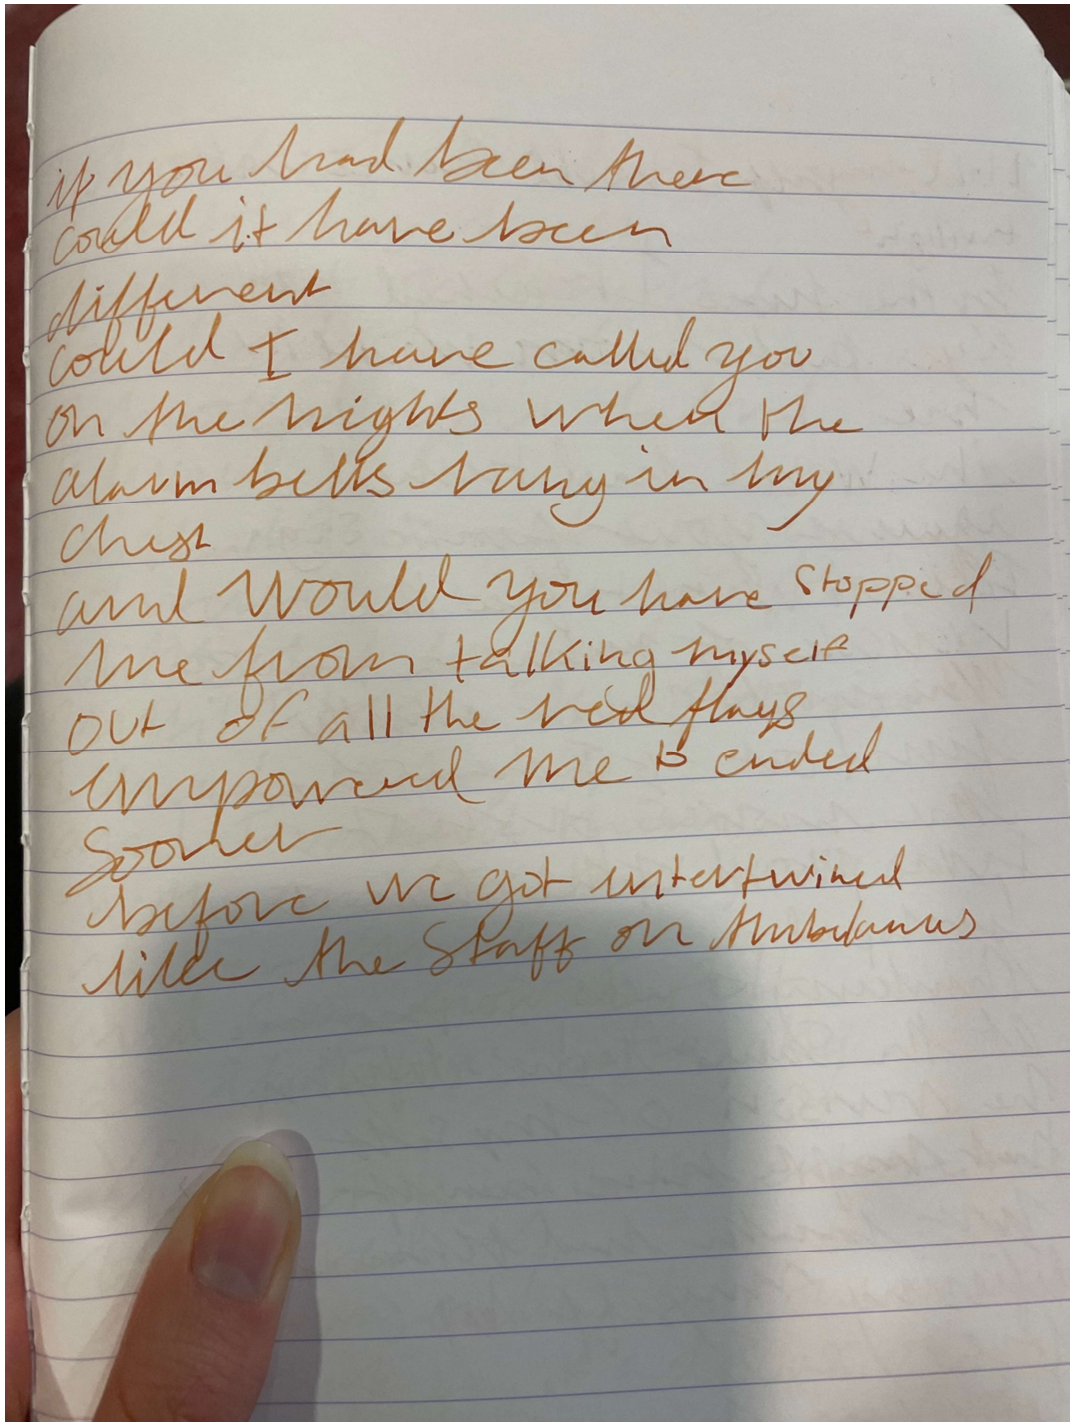 if you had been there
could it have been
different
could I have called you
on the nights when the
alarm bells rang in my
chest
and would you have stopped
me from talking myself
out of all the red flags
empowered me to ended
sooner
before we got intertwined
like the staff on